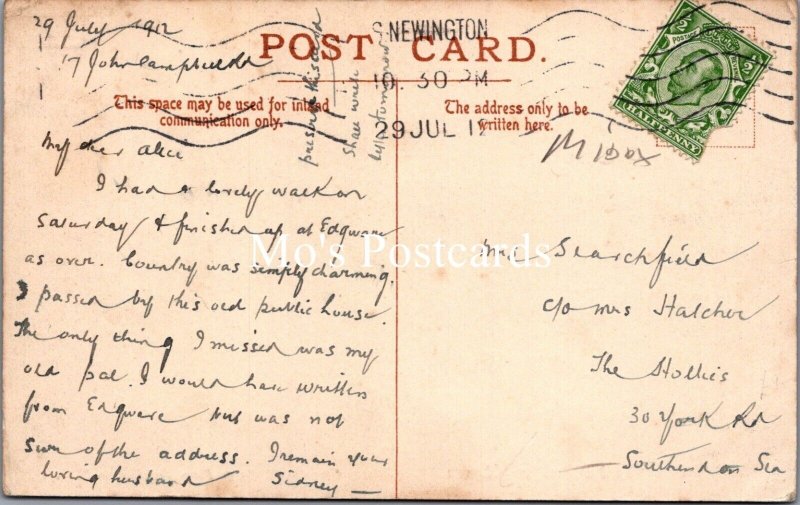 29 July 1912
17 John Campbell Rd
POST CARD.
S. NEWINGTON
10. 30 PM
29 JUL 12
POSTAGE
HALFPENNY
This space may be used for inland
communication only.
The address only to be
written here.
preserve this card
Shall write
tomorrow
My dear Alice
I had a lovely walk on
Saturday & finished up at Edgware
as over. Country was simply charming.
I passed by this old public house.
The only thing I missed was my
old pal. I would have written
from Edgware but was not
sure of the address. I remain your
loving husband Sidney
Mo's Postcards
Mrs Searchfield
c/o Mrs Hatcher
The Hollies
30 York Rd
Southend on Sea